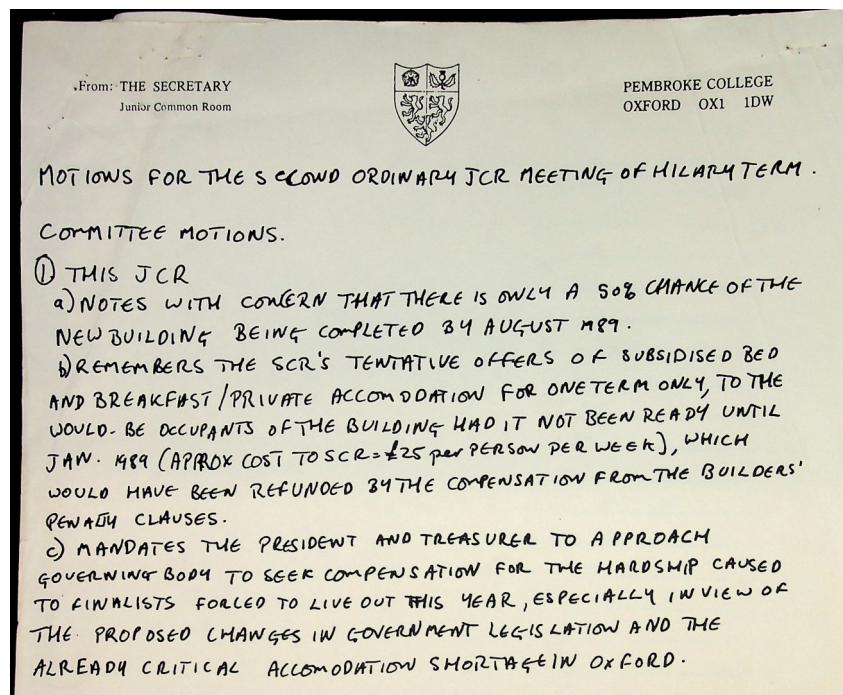 From: THE SECRETARY
Junior Common Room
PEMBROKE COLLEGE
OXFORD OX1 1DW
MOTIONS FOR THE SECOND ORDINARY JCR MEETING OF HILARY TERM.
COMMITTEE MOTIONS.
① THIS JCR
a) NOTES WITH CONCERN THAT THERE IS ONLY A 50% CHANCE OF THE
NEW BUILDING BEING COMPLETED BY AUGUST 1989.
b) REMEMBERS THE SCR'S TENTATIVE OFFERS OF SUBSIDISED BED
AND BREAKFAST/PRIVATE ACCOMODATION FOR ONE TERM ONLY, TO THE
WOULD-BE OCCUPANTS OF THE BUILDING HAD IT NOT BEEN READY UNTIL
JAN. 1989 (APPROX COST TO SCR = £25 per PERSON PER WEEK), WHICH
WOULD HAVE BEEN REFUNDED BY THE COMPENSATION FROM THE BUILDERS'
PENALTY CLAUSES.
c) MANDATES THE PRESIDENT AND TREASURER TO APPROACH
GOVERNING BODY TO SEEK COMPENSATION FOR THE HARDSHIP CAUSED
TO FINALISTS FORCED TO LIVE OUT THIS YEAR, ESPECIALLY IN VIEW OF
THE PROPOSED CHANGES IN GOVERNMENT LEGISLATION AND THE
ALREADY CRITICAL ACCOMODATION SHORTAGE IN OXFORD.